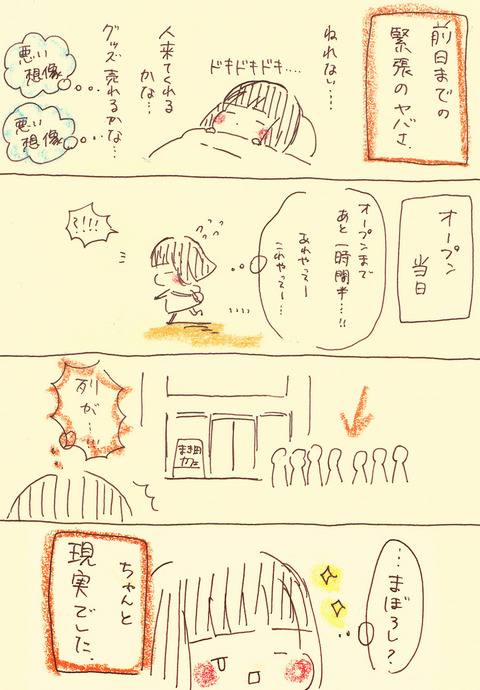 前日までの
緊張のヤバさ.
ねれない…
ドキドキドキ‥‥
人来てくれる
かな…
グッズ売れるかな…
悪い
想像
悪い
想像
オープン
当日
オープンまで
あと一時間半…!!
あれやってー
これやってー…
?!!!
列が…!
まき田
カフェ
…まぼろし?
ちゃんと
現実でした.